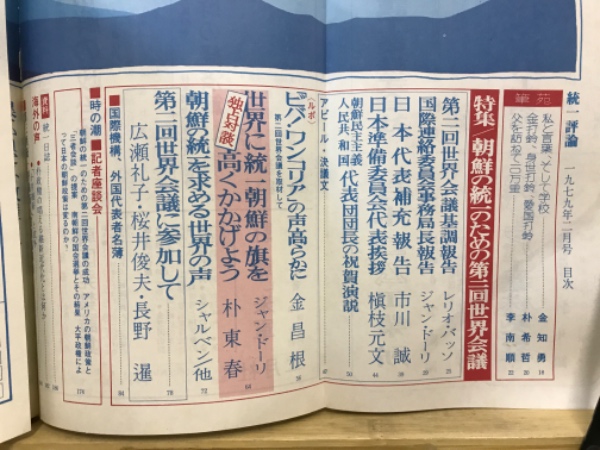 統一評論 一九七九年二月号 目次
華苑
私と言葉、そして学校 金知勇 18
金打鈴、身世打鈴、愛国打鈴 朴希哲 20
父を訪ねて三万里 李南順 22
特集/朝鮮の統一のための第二回世界会議
第二回世界会議基調報告 レリオ・バッソ 25
国際連絡委員会事務局長報告 ジャン・ドーリ
日本代表補充報告 市川誠
日本準備委員会代表挨拶 槇枝元文 44
朝鮮民主主義人民共和国代表団団長の祝賀演説
アピール・決議文
〈ルポ〉
ビバ・ワンコリアの声高らかに 金昌根
第二回世界会議を取材して
独占対談
世界に統一朝鮮の旗を高くかかげよう ジャン・ドーリ 朴東春
朝鮮の統一を求める世界の声 シャルベン他 72
第二回世界会議に参加して 広瀬礼子・桜井俊夫・長野暹 78
■国際機構、外国代表者名簿 84
■時の潮 ■記者座談会
朝鮮の統一のための第二回世界会議の成功 アメリカの朝鮮政策と
「三者会談」の提案 南朝鮮の国会選挙とその結果 大平政権によ
って日本の朝鮮政策は変るのか? 174
資料 統一日誌
海外の声